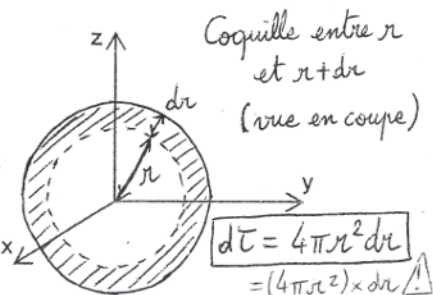 Coquille entre r
et r+dr
(vue en coupe)
z
dr
r
y
x
dτ = 4πr²dr
=(4πr²)×dr
!